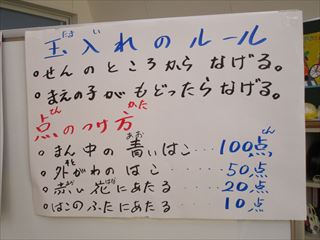 玉入れのルール
○せんのところから なげる。
○まえの子が もどったら なげる。
点のつけ方
○まん中の青いはこ‥‥100点
○外がわのはこ‥‥‥50点
○赤い花にあたる‥‥20点
○はこのふたにあたる‥‥10点